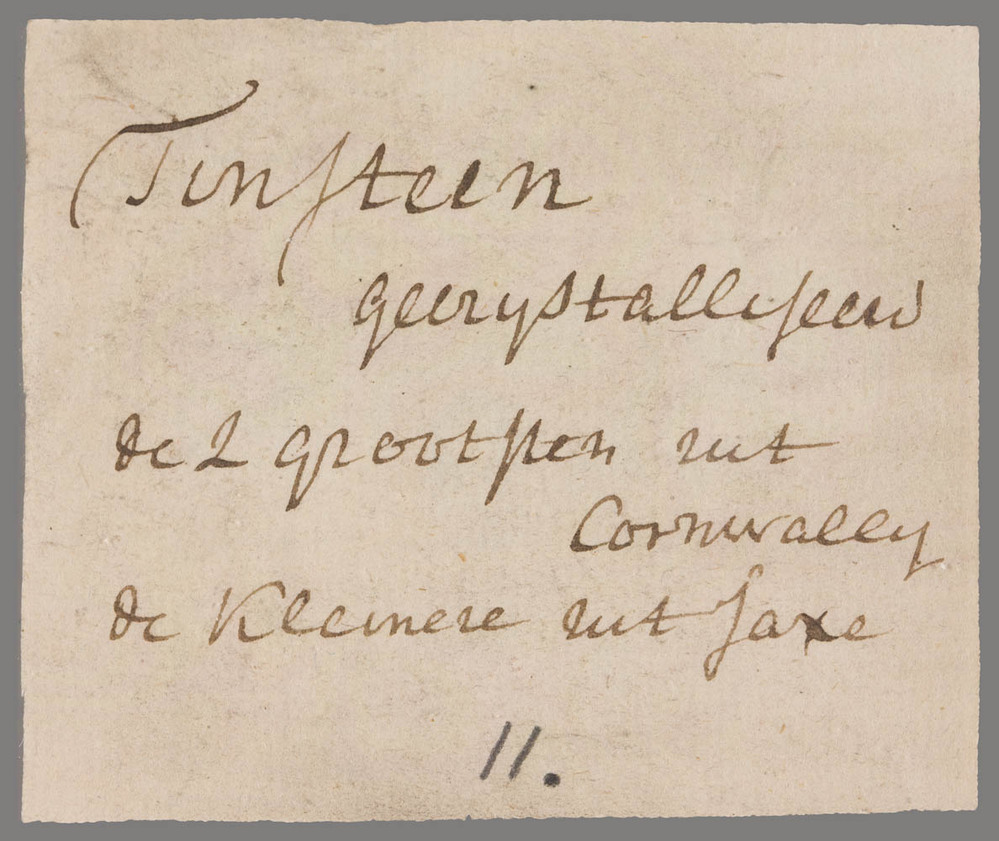 Tinsteen
gecrystalliseerd
de 2 grootsten uit
Cornwally
de Kleinere uit Saxe
11.